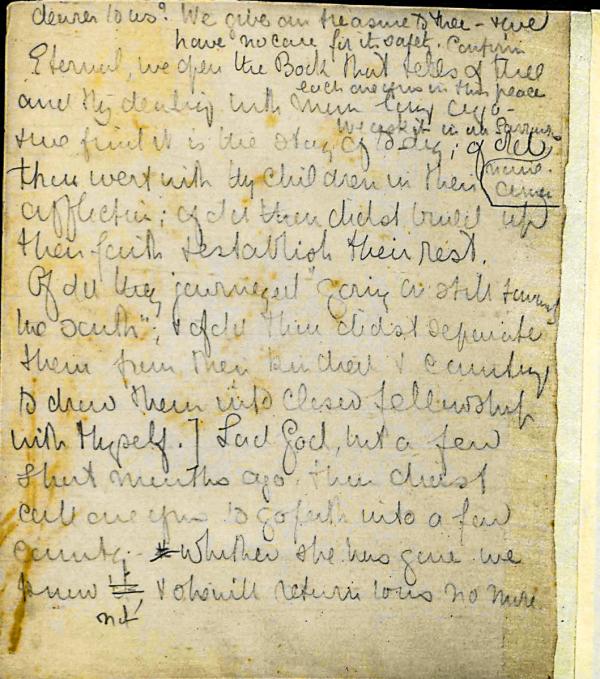 dearer to us? We give our treasure to thee - & we
have no care for its safety. Confirm
Eternal, we open the Book that tells of thee
each one of us in this peace
and thy dealing with men long ago -
We ask it in our Saviour's
& we find it is the story of to day; of old
name.
thou wert with thy children in their
affliction; of old thou didst build up
their faith & establish their rest.
Of old they journeyed "going on still toward
the south"; & of old thou didst separate
them from their kindred & country
to draw them into closer fellowship
with thyself.] Lord God, but a few
short months ago thou didst
call one of us to go forth into a far
country - whither she has gone we
know not & she will return to us no more
not